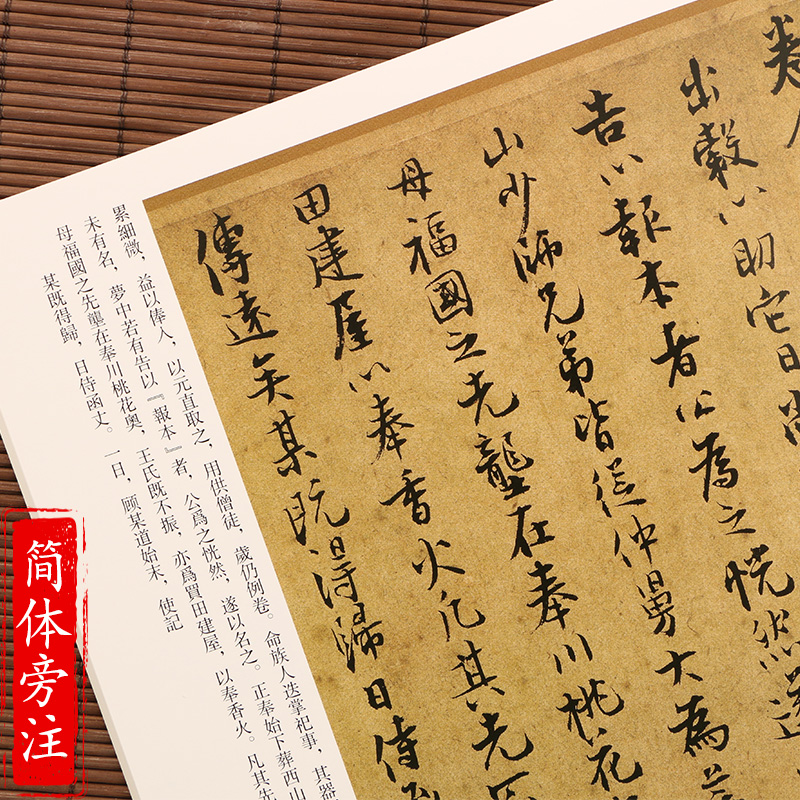 出穀以助它日尚
告以報本者公為之恍然遂
山少師兄弟皆從仲舅大為
母福國之先壟在奉川桃花
田建屋以奉香火凡其先
傳遠矣某既得歸日侍
累細微，益以俸人，以元直取之，用供僧徒，歲仍例卷。命族人迭掌祀事，其器
未有名，夢中若有告以『報本』者，公爲之恍然，遂以名之。正奉始下葬西山
母福國之先壟在奉川桃花奧，王氏既不振，亦爲買田建屋，以奉香火。凡其先
某既得歸，日侍函丈。一日，顧某道始末，使記
简体旁注